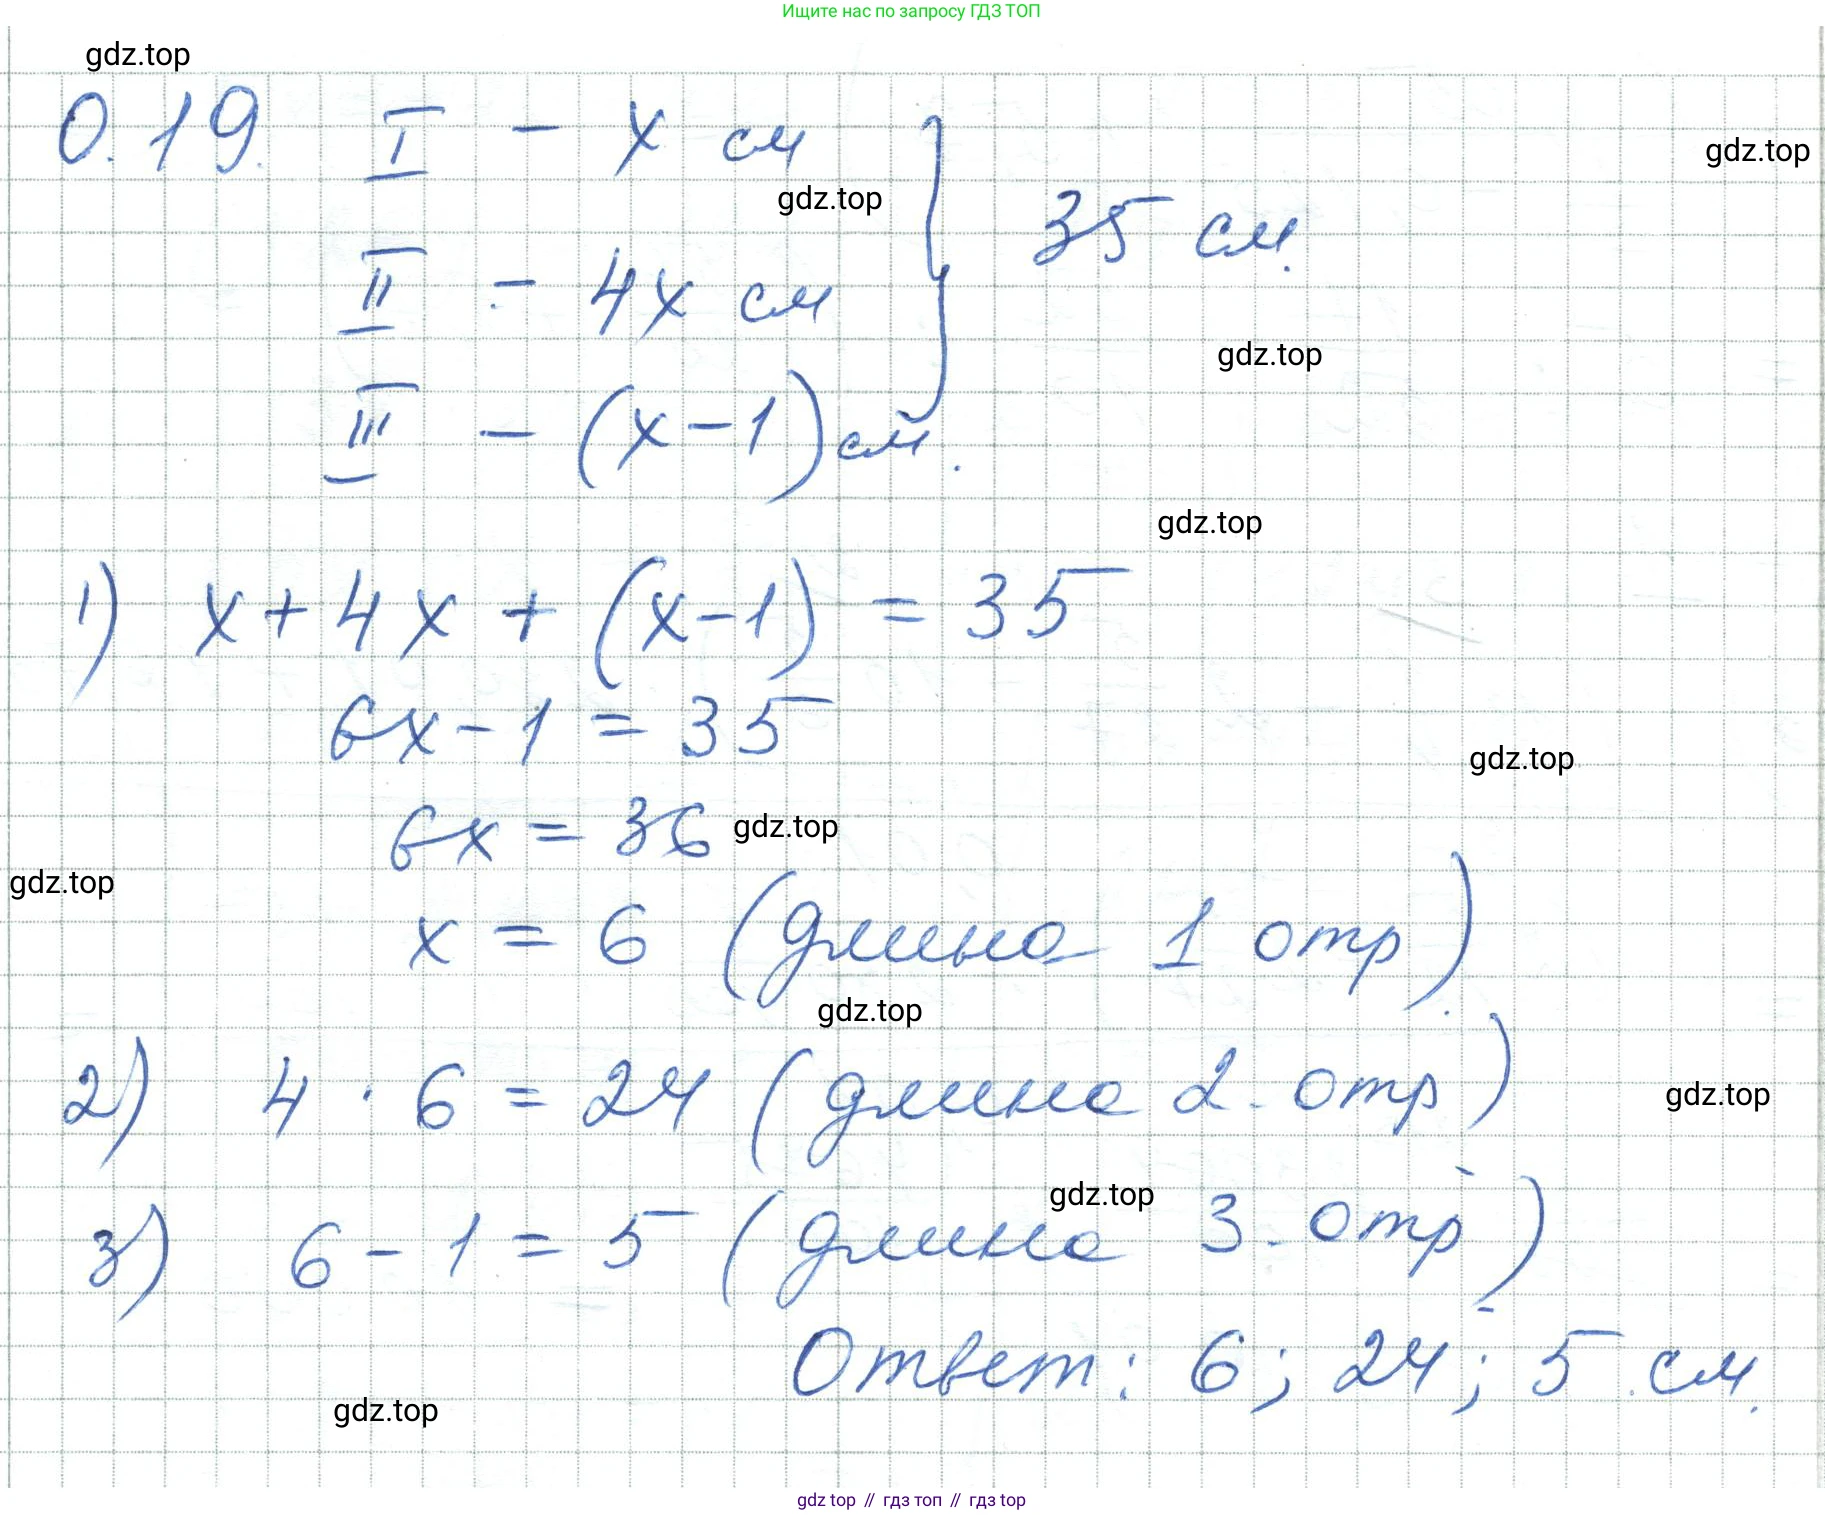 Ищите нас по запросу ГДЗ ТОП
gdz.top
0.19. I - x см
gdz.top
gdz.top
35 см.
II - 4x см
gdz.top
III - (x-1) см.
gdz.top
1) x + 4x + (x-1) = 35
6x - 1 = 35
gdz.top
6x = 36
gdz.top
gdz.top
x = 6 (длина 1 отр)
gdz.top
2) 4 · 6 = 24 (длина 2. отр)
gdz.top
gdz.top
3) 6 - 1 = 5 (длина 3. отр)
Ответ: 6; 24; 5 см.
gdz.top
gdz top // гдз топ // gdz top